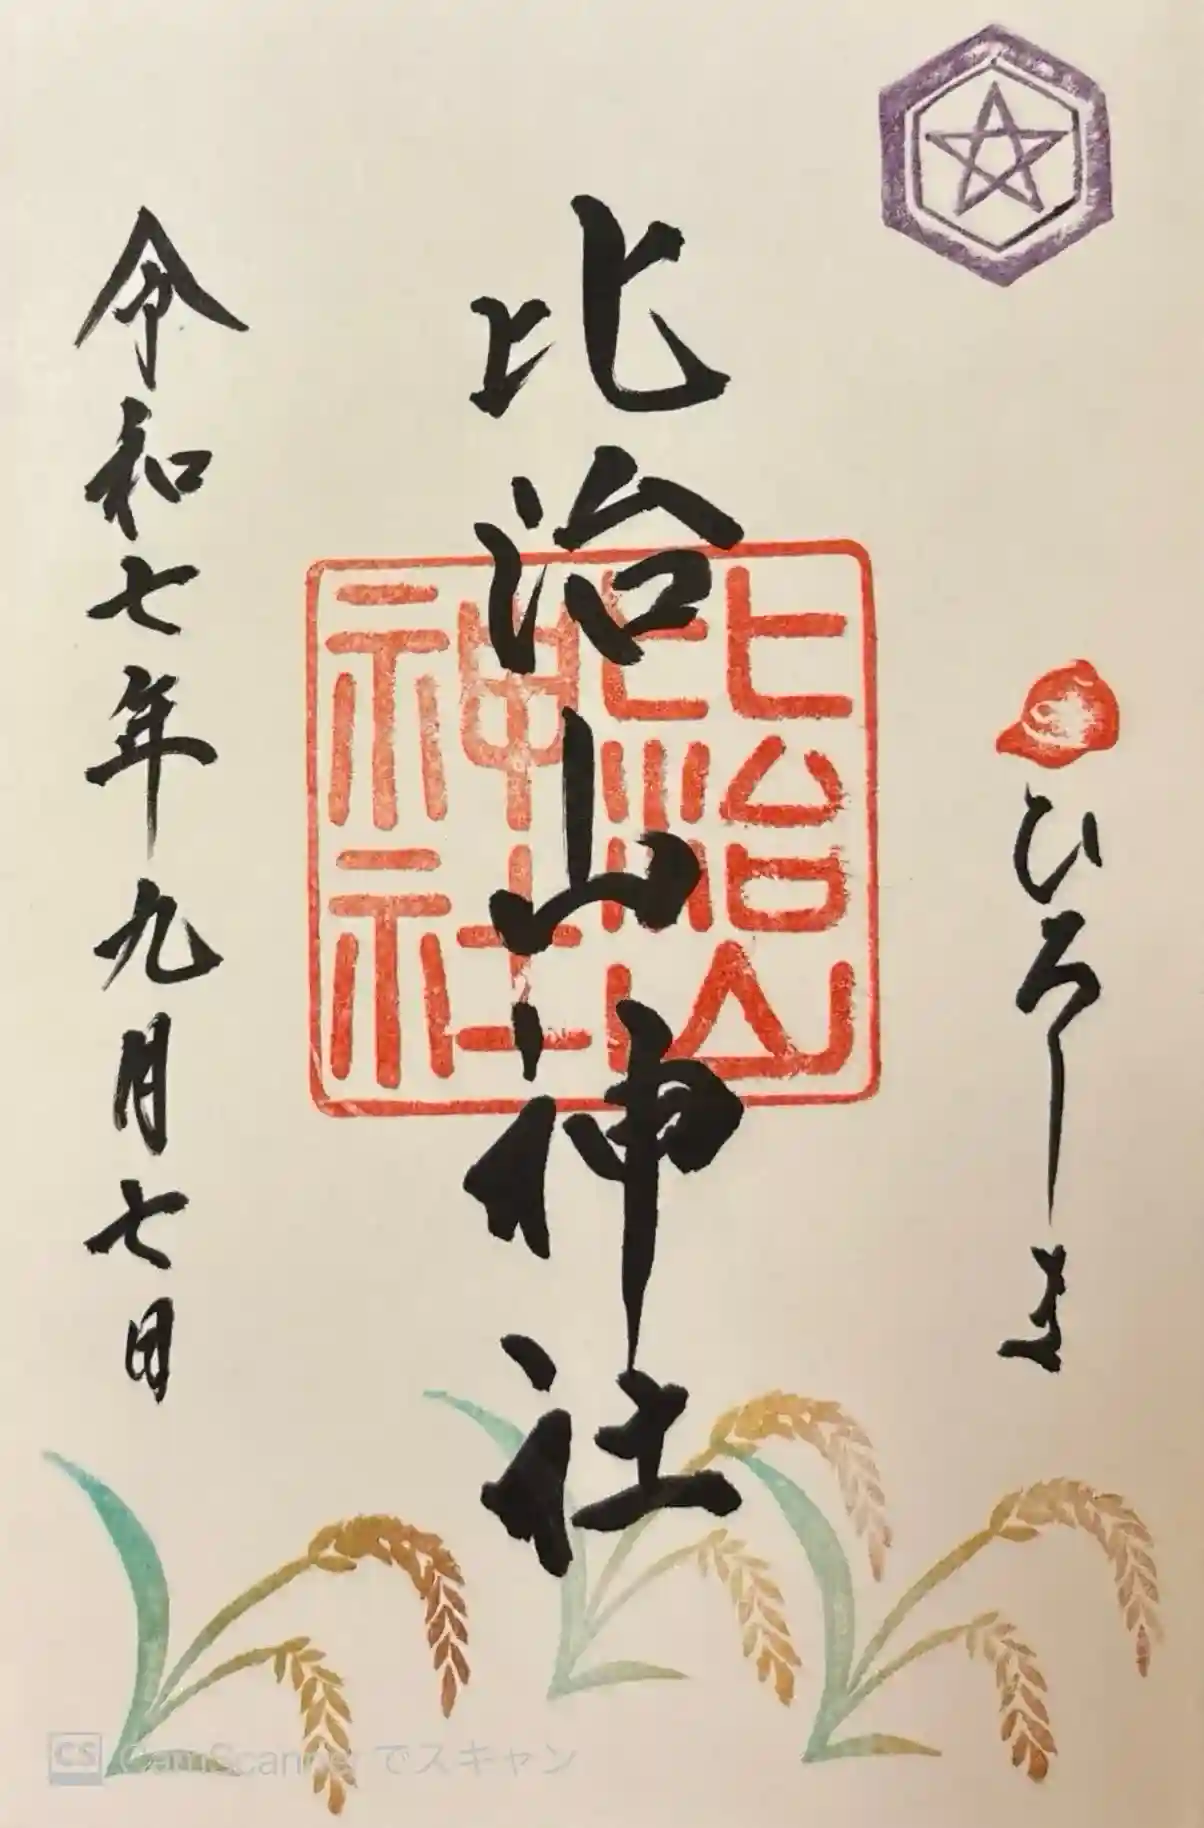 ひろしま
比治山神社
比治山
神社
令和七年九月七日
CS CamScanner でスキャン